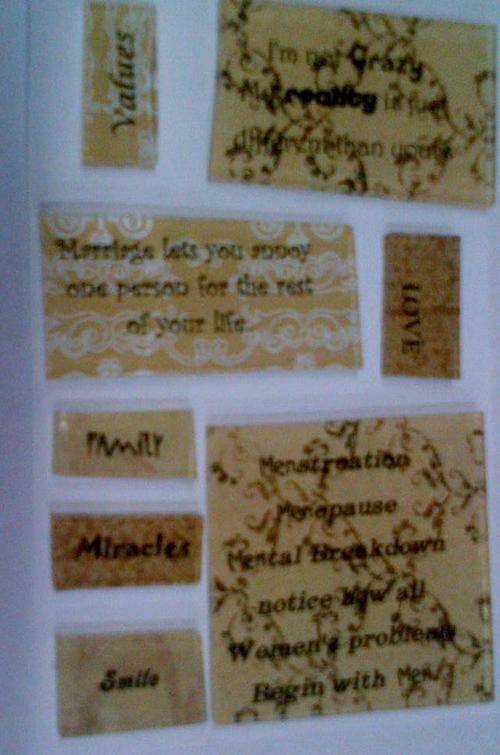 Values
I'm not Crazy
My reality is just
different than yours
Marriage lets you annoy
one person for the rest
of your life.
LOVE
FAMILY
Miracles
Menstruation
Menopause
Mental Breakdown
notice how all
Women's problems
Begin with Men!
Smile